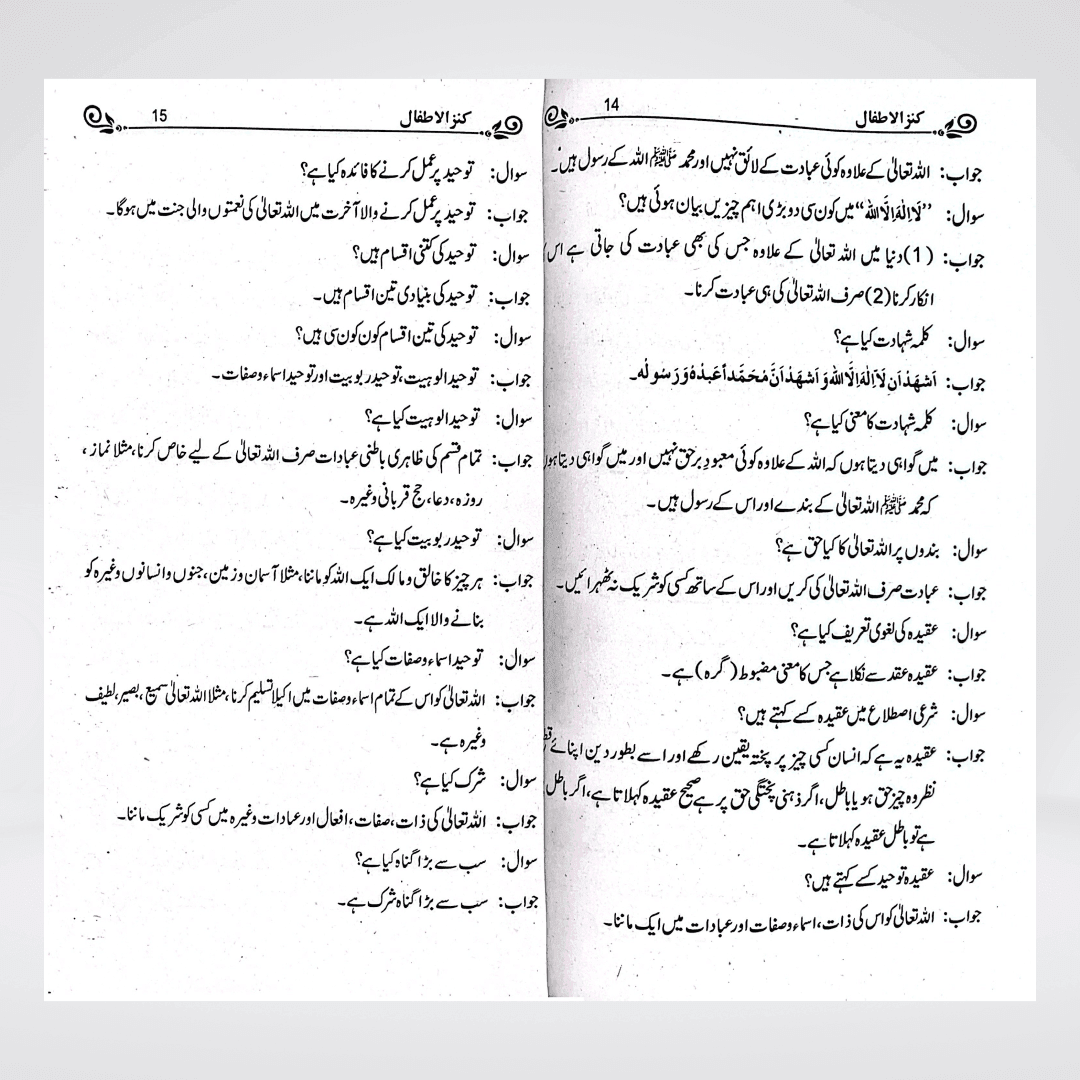 کنز الاطفال 14
جواب: اللہ تعالیٰ کے علاوہ کوئی عبادت کے لائق نہیں اور محمد ﷺ اللہ کے رسول ہیں۔
سوال: ’’لَا اِلٰهَ اِلَّا اللہ‘‘ میں کون سی دو بڑی اہم چیزیں بیان ہوئی ہیں؟
جواب: (1) دنیا میں اللہ تعالیٰ کے علاوہ جس کی بھی عبادت کی جاتی ہے اس
انکار کرنا (2) صرف اللہ تعالیٰ کی ہی عبادت کرنا۔
سوال: کلمہ شہادت کیا ہے؟
جواب: اَشْهَدُ اَن لَّا اِلٰهَ اِلَّا اللہ وَ اَشْهَدُ اَنَّ مُحَمَّداً عَبدُهُ وَ رَسُولُه۔
سوال: کلمہ شہادت کا معنی کیا ہے؟
جواب: میں گواہی دیتا ہوں کہ اللہ کے علاوہ کوئی معبود برحق نہیں اور میں گواہی دیتا ہوں
کہ محمد ﷺ اللہ تعالیٰ کے بندے اور اس کے رسول ہیں۔
سوال: بندوں پر اللہ تعالیٰ کا کیا حق ہے؟
جواب: عبادت صرف اللہ تعالیٰ کی کریں اور اس کے ساتھ کسی کو شریک نہ ٹھہرائیں۔
سوال: عقیدہ کی لغوی تعریف کیا ہے؟
جواب: عقیدہ عقد سے نکلا ہے جس کا معنی مضبوط (گرہ) ہے۔
سوال: شرعی اصطلاح میں عقیدہ کسے کہتے ہیں؟
جواب: عقیدہ یہ ہے کہ انسان کسی چیز پر پختہ یقین رکھے اور اسے بطور دین اپنائے
نظر وہ چیز حق ہو یا باطل، اگر ذہنی پختگی حق پر ہے صحیح عقیدہ کہلاتا ہے، اگر باطل
ہے تو باطل عقیدہ کہلاتا ہے۔
سوال: عقیدہ توحید کسے کہتے ہیں؟
جواب: اللہ تعالیٰ کو اس کی ذات، اسماء و صفات اور عبادات میں ایک ماننا۔
کنز الاطفال 15
سوال: توحید پر عمل کرنے کا فائدہ کیا ہے؟
جواب: توحید پر عمل کرنے والا آخرت میں اللہ تعالیٰ کی نعمتوں والی جنت میں ہوگا۔
سوال: توحید کی کتنی اقسام ہیں؟
جواب: توحید کی بنیادی تین اقسام ہیں۔
سوال: توحید کی تین اقسام کون کون سی ہیں؟
جواب: توحید الوہیت، توحید ربوبیت اور توحید اسماء و صفات۔
سوال: توحید الوہیت کیا ہے؟
جواب: تمام قسم کی ظاہری باطنی عبادات صرف اللہ تعالیٰ کے لیے خاص کرنا، مثلا نماز،
روزہ، دعا، حج قربانی وغیرہ۔
سوال: توحید ربوبیت کیا ہے؟
جواب: ہر چیز کا خالق و مالک ایک اللہ کو ماننا، مثلا آسمان و زمین، جنوں و انسانوں وغیرہ کو
بنانے والا ایک اللہ ہے۔
سوال: توحید اسماء و صفات کیا ہے؟
جواب: اللہ تعالیٰ کو اس کے تمام اسماء و صفات میں اکیلا تسلیم کرنا، مثلا اللہ تعالیٰ سمیع، بصیر، لطیف
وغیرہ ہے۔
سوال: شرک کیا ہے؟
جواب: اللہ تعالیٰ کی ذات، صفات، افعال اور عبادات وغیرہ میں کسی کو شریک ماننا۔
سوال: سب سے بڑا گناہ کیا ہے؟
جواب: سب سے بڑا گناہ شرک ہے۔